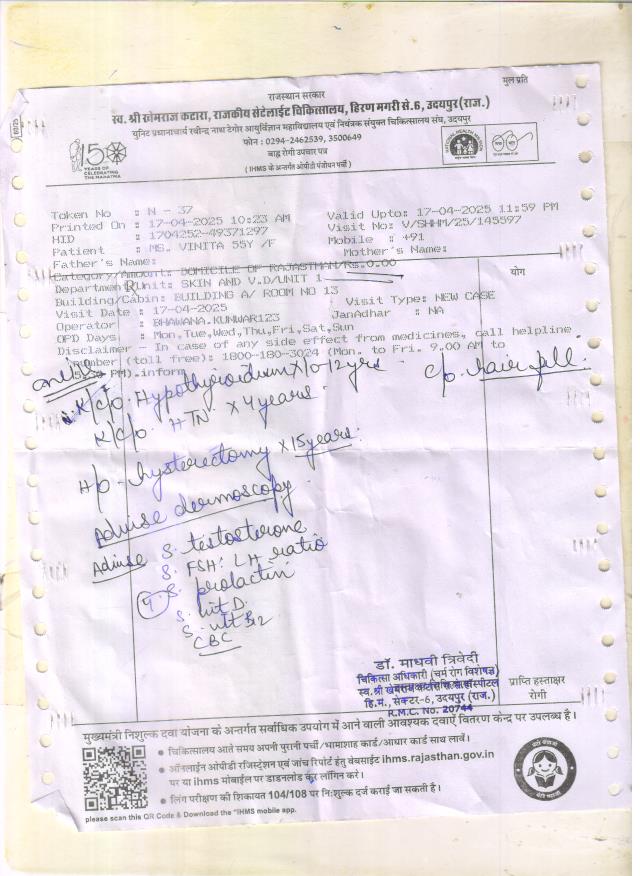 मुल प्रति
राजस्थान सरकार
स्व. श्री खेमराज कटारा, राजकीय सेटेलाईट चिकित्सालय, हिरण मगरी से.6, उदयपुर (राज.)
युनिट प्रधानाचार्य रबीन्द्र नाथ टेगोर आयुर्विज्ञान महाविद्यालय एवं नियंत्रक संयुक्त चिकित्सालय संघ, उदयपुर
फोन : 0294-2462539, 3500649
बाह्य रोगी उपचार पत्र
( IHMS के अन्तर्गत ओपीडी पंजीयन पर्ची )
YEARS OF
CELEBRATING
THE MAHATMA
Token No : N - 37
Printed On : 17-04-2025 10:23 AM Valid Upto: 17-04-2025 11:59 PM
HID : 1704252-49371297 Visit No: V/SHHM/25/145597
Patient : MS. VINITA 55Y /F Mobile : +91
Father's Name: Mother's Name:
Category/Amount: DOMICILE OF RAJASTHAN/Rs.0.00
Department/Unit: SKIN AND V.D/UNIT 1
योग
Building/Cabin: BUILDING A/ ROOM NO 13
Visit Date : 17-04-2025 Visit Type: NEW CASE
Operator : BHAWANA.KUNWAR123 JanAdhar : NA
OPD Days : Mon,Tue,Wed,Thu,Fri,Sat,Sun
Disclaimer - In case of any side effect from medicines, call helpline
number (toll free): 1800-180-3024 (Mon. to Fri. 9.00 AM to
PM).inform
c/o. hair fall.
K/c/o. Hypothyroidium x 10-12 yrs
K/c/o. HTN x 4 years.
H/o - hysterectomy x 15 years.
Advise dermoscopy.
Advise S. testosterone
S. FSH: LH ratio
S. prolactin
S. vit D.
S. vit B12
CBC
डॉ. माधवी त्रिवेदी
चिकित्सा अधिकारी (चर्म रोग विशेषज्ञ)
हि.म., सेक्टर-6, उदयपुर (राज.)
R.M.C. No. 20744
प्राप्ति हस्ताक्षर
रोगी
मुख्यमंत्री निशुल्क दवा योजना के अन्तर्गत सर्वाधिक उपयोग में आने वाली आवश्यक दवाऐं वितरण केन्द्र पर उपलब्ध है।
● चिकित्सालय आते समय अपनी पुरानी पर्ची/भामाशाह कार्ड/आधार कार्ड साथ लावें।
● ऑनलाईन ओपीडी रजिस्ट्रेशन एवं जांच रिपोर्ट हेतु वेबसाईट ihms.rajasthan.gov.in
पर या ihms मोबाईल पर डाउनलोड कर लॉगिन करे।
● लिंग परीक्षण की शिकायत 104/108 पर नि:शुल्क दर्ज कराई जा सकती है।
please scan this QR Code & Download the "IHMS mobile app.